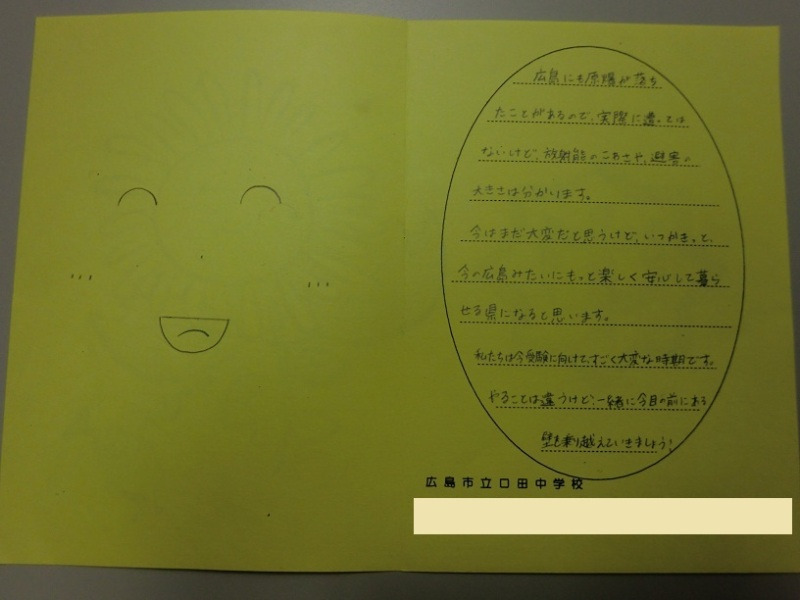 広島にも原爆が落ち
たことがあるので、実際に遭っては
ないけど、放射能のこわさや、被害の
大きさは分かります。
今はまだ大変だと思うけど、いつかきっと、
今の広島みたいにもっと楽しく安心して暮ら
せる県になると思います。
私たちは今受験に向けて、すごく大変な時期です。
やることは違うけど、一緒に今目の前にある
壁を乗り越えていきましょう!
広島市立口田中学校